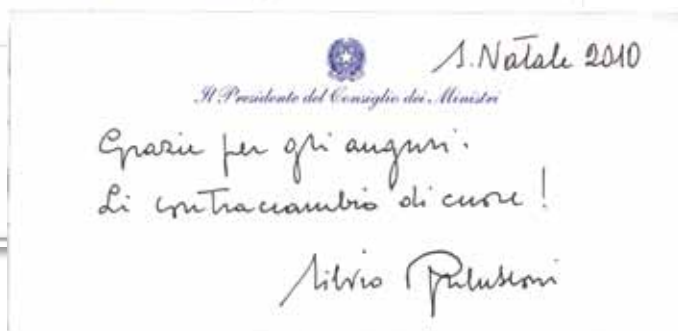 S. Natale 2010
Il Presidente del Consiglio dei Ministri
Grazie per gli auguri.
Li contraccambio di cuore!
Silvio Berlusconi